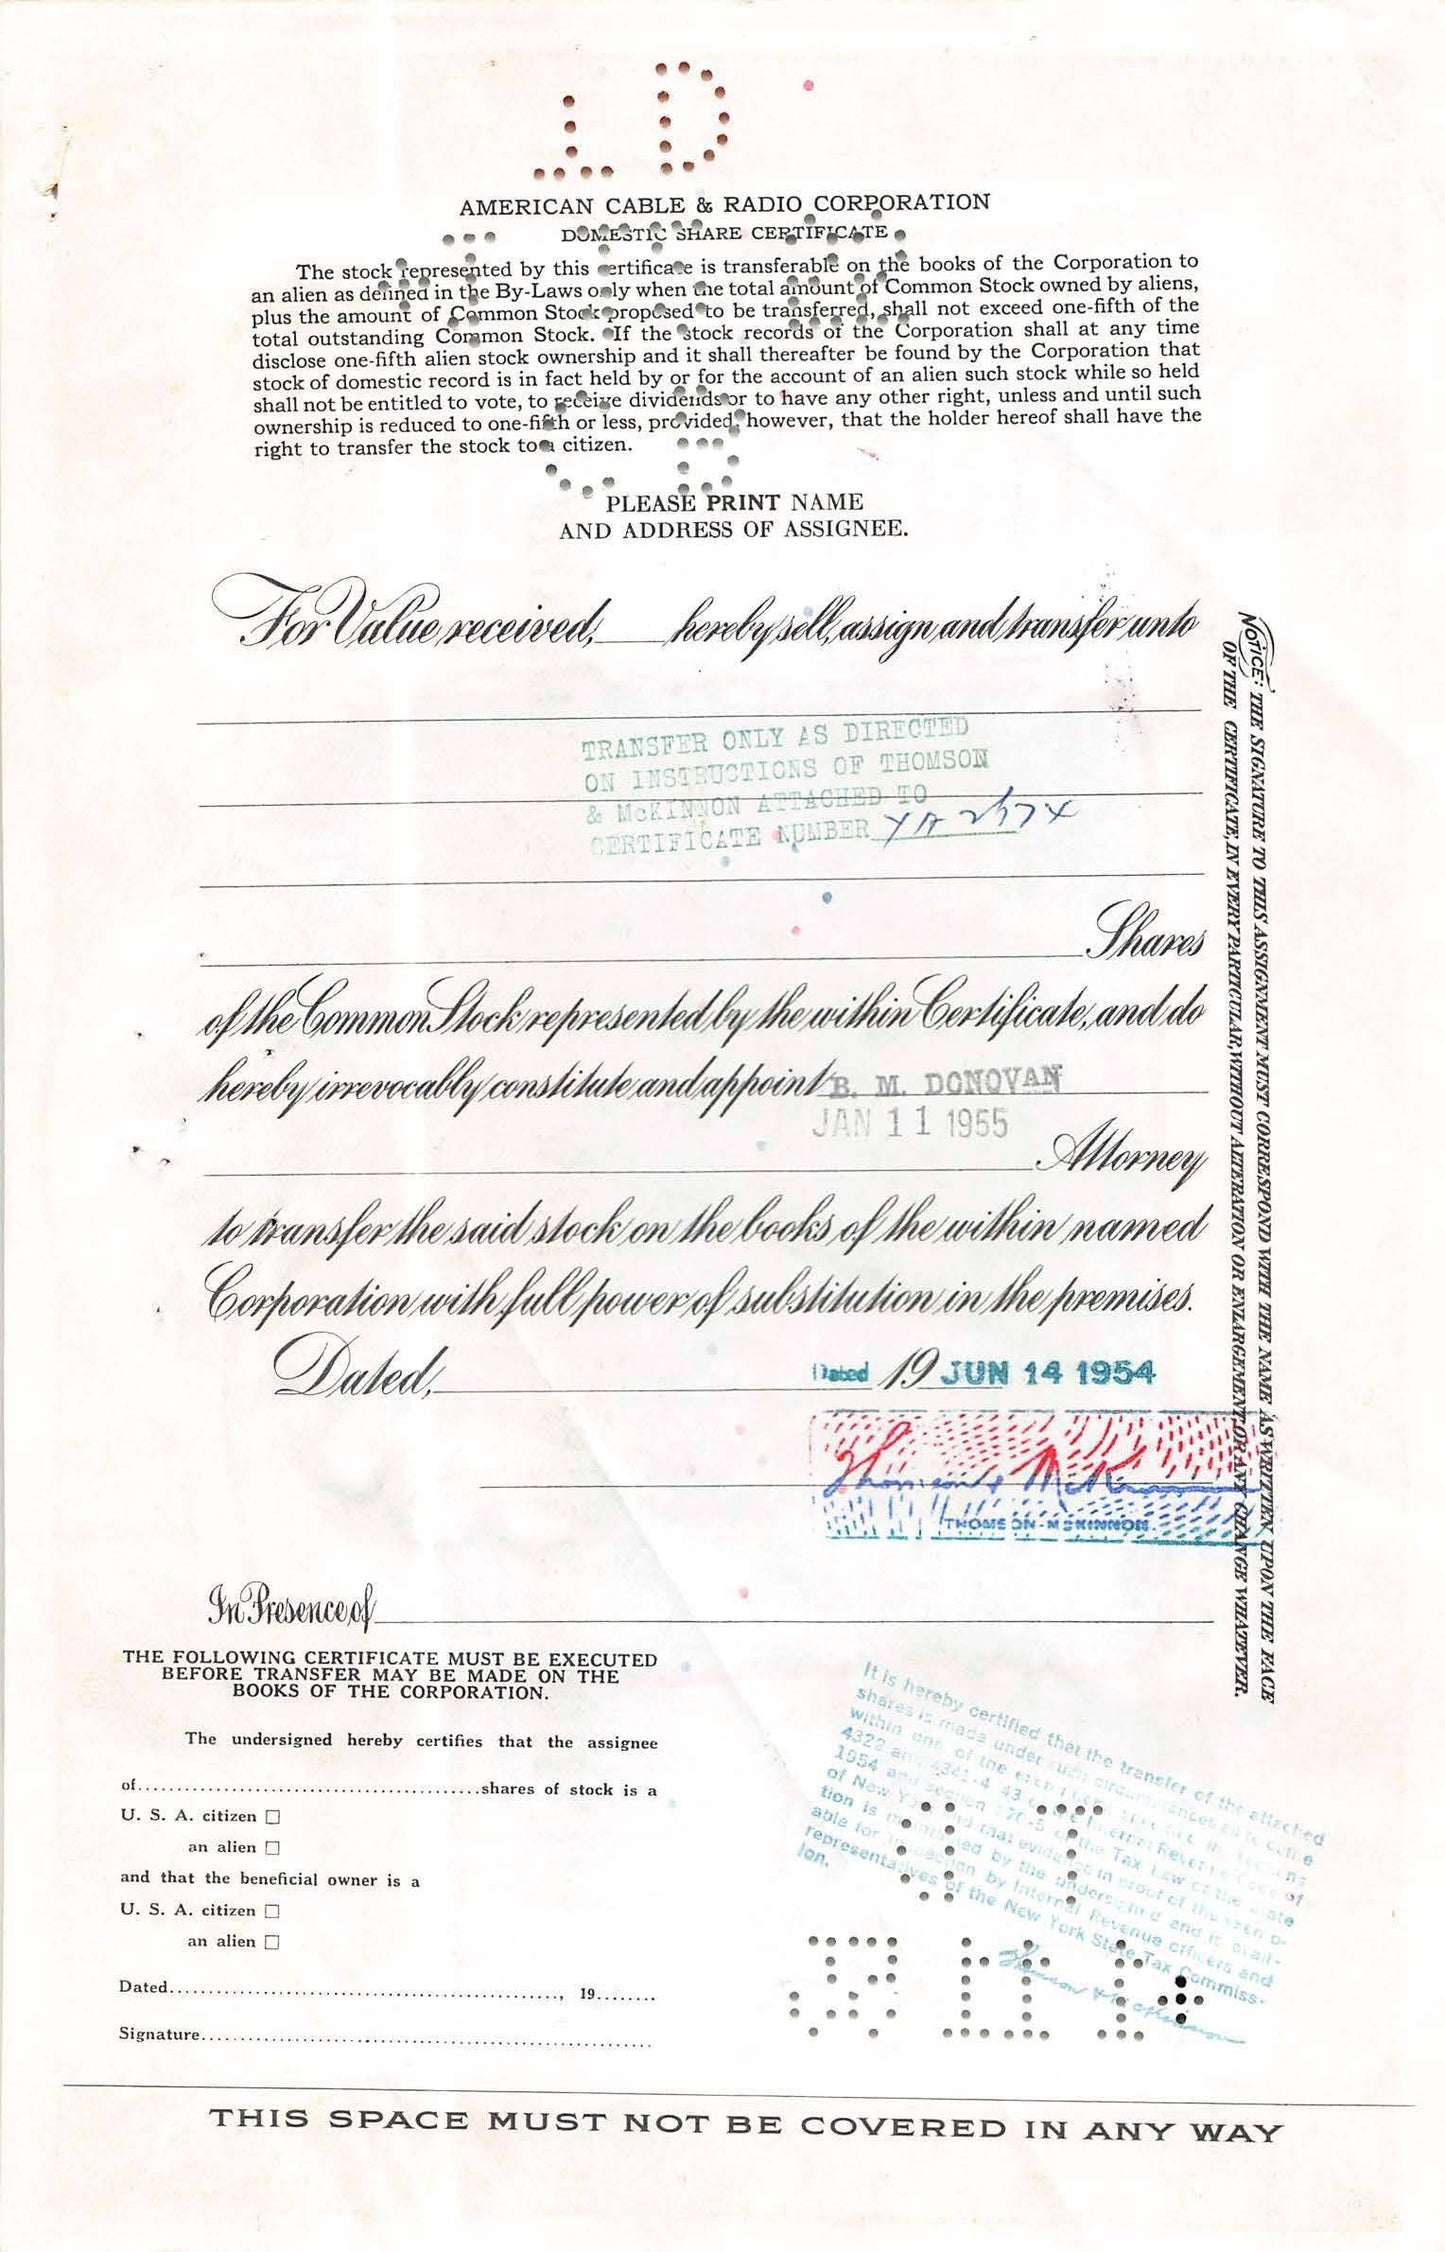 AMERICAN CABLE & RADIO CORPORATION
DOMESTIC SHARE CERTIFICATE
The stock represented by this certificate is transferable on the books of the Corporation to
an alien as defined in the By-Laws only when the total amount of Common Stock owned by aliens,
plus the amount of Common Stock proposed to be transferred, shall not exceed one-fifth of the
total outstanding Common Stock. If the stock records of the Corporation shall at any time
disclose one-fifth alien stock ownership and it shall thereafter be found by the Corporation that
stock of domestic record is in fact held by or for the account of an alien such stock while so held
shall not be entitled to vote, to receive dividends or to have any other right, unless and until such
ownership is reduced to one-fifth or less, provided, however, that the holder hereof shall have the
right to transfer the stock to a citizen.
PLEASE PRINT NAME
AND ADDRESS OF ASSIGNEE.
For Value received, hereby sell, assign and transfer unto
TRANSFER ONLY AS DIRECTED
ON INSTRUCTIONS OF THOMSON
& McKINNON ATTACHED TO
CERTIFICATE NUMBER
Shares
of the Common Stock represented by the within Certificate, and do
hereby irrevocably constitute and appoint B. M. DONOVAN
JAN 11 1955
Attorney
to transfer the said stock on the books of the within named
Corporation with full power of substitution in the premises.
Dated, Dated 19 JUN 14 1954
Thomson & McK
THOMSON-McKINNON
In Presence of
NOTICE: THE SIGNATURE TO THIS ASSIGNMENT MUST CORRESPOND WITH THE NAME AS WRITTEN UPON THE FACE
OF THE CERTIFICATE, IN EVERY PARTICULAR, WITHOUT ALTERATION OR ENLARGEMENT, OR ANY CHANGE WHATEVER.
THE FOLLOWING CERTIFICATE MUST BE EXECUTED
BEFORE TRANSFER MAY BE MADE ON THE
BOOKS OF THE CORPORATION.
The undersigned hereby certifies that the assignee
of shares of stock is a
U. S. A. citizen
an alien
and that the beneficial owner is a
U. S. A. citizen
an alien
Dated , 19
Signature
It is hereby certified that the transfer of the attached
shares is made under such circumstances as to come
within one of the
4322 and
1954 and section 270-5 of the Tax Law of the State
of New and that evidence in proof of the
tion is maintained by the undersigned and is avail-
able for inspection by Internal Revenue officers and
representatives of the New York State Tax Commiss-
ion.
THIS SPACE MUST NOT BE COVERED IN ANY WAY